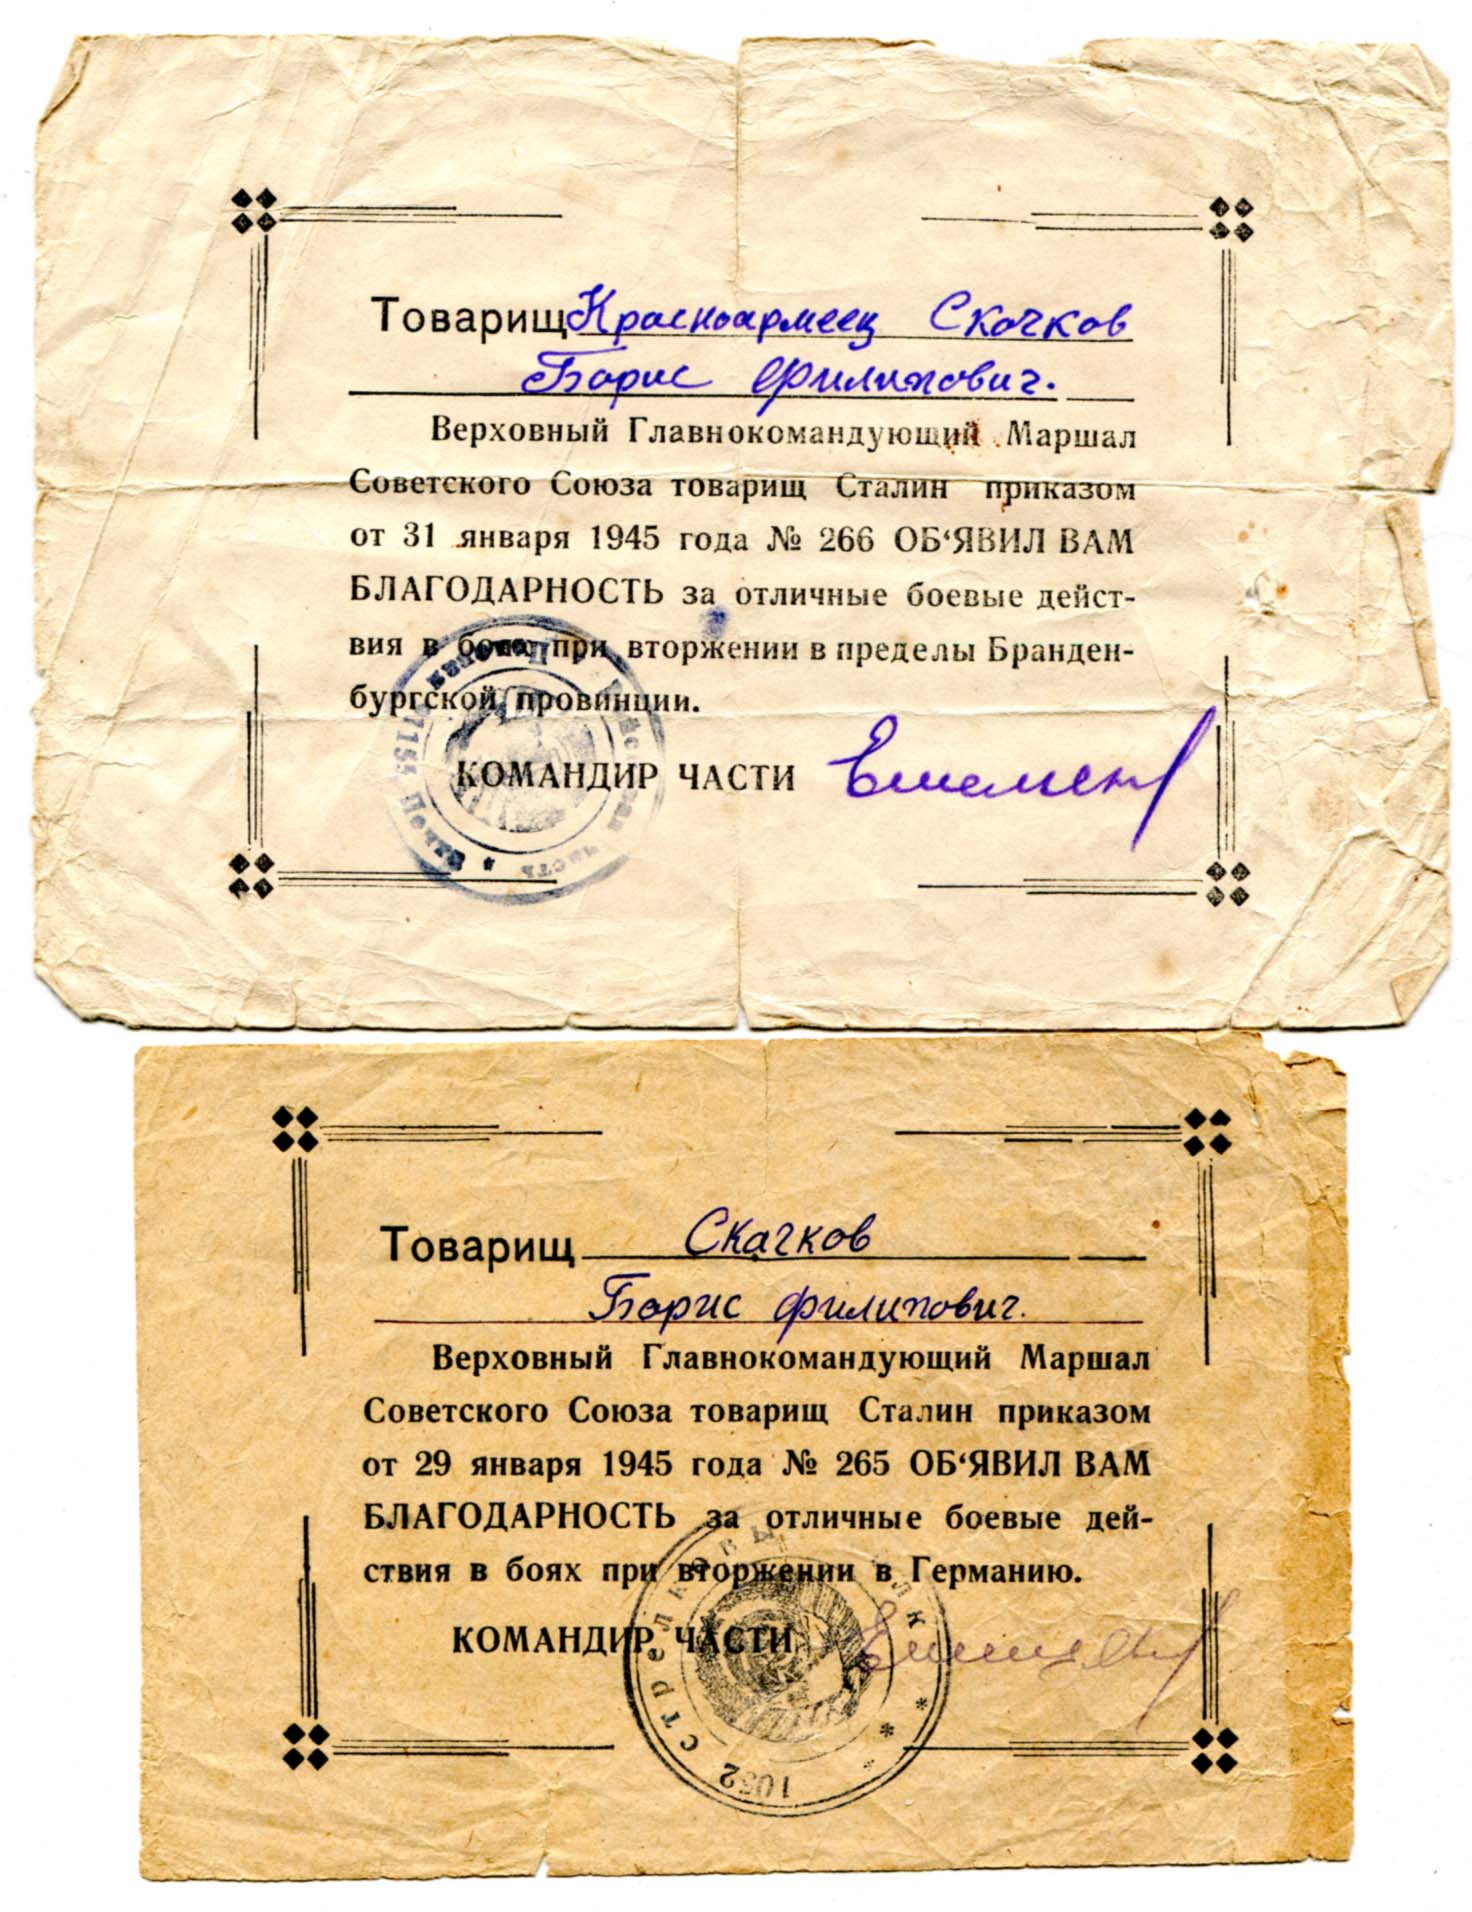 Товарищ Красноармеец Скочков
Борис Филипович.
Верховный Главнокомандующий Маршал
Советского Союза товарищ Сталин приказом
от 31 января 1945 года № 266 ОБ‘ЯВИЛ ВАМ
БЛАГОДАРНОСТЬ за отличные боевые дейст-
вия в боях при вторжении в пределы Бранден-
бургской провинции.
КОМАНДИР ЧАСТИ
часть *
Товарищ Скачков
Борис Филипович.
Верховный Главнокомандующий Маршал
Советского Союза товарищ Сталин приказом
от 29 января 1945 года № 265 ОБ‘ЯВИЛ ВАМ
БЛАГОДАРНОСТЬ за отличные боевые дей-
ствия в боях при вторжении в Германию.
КОМАНДИР ЧАСТИ
1052 стрелковый полк * * *